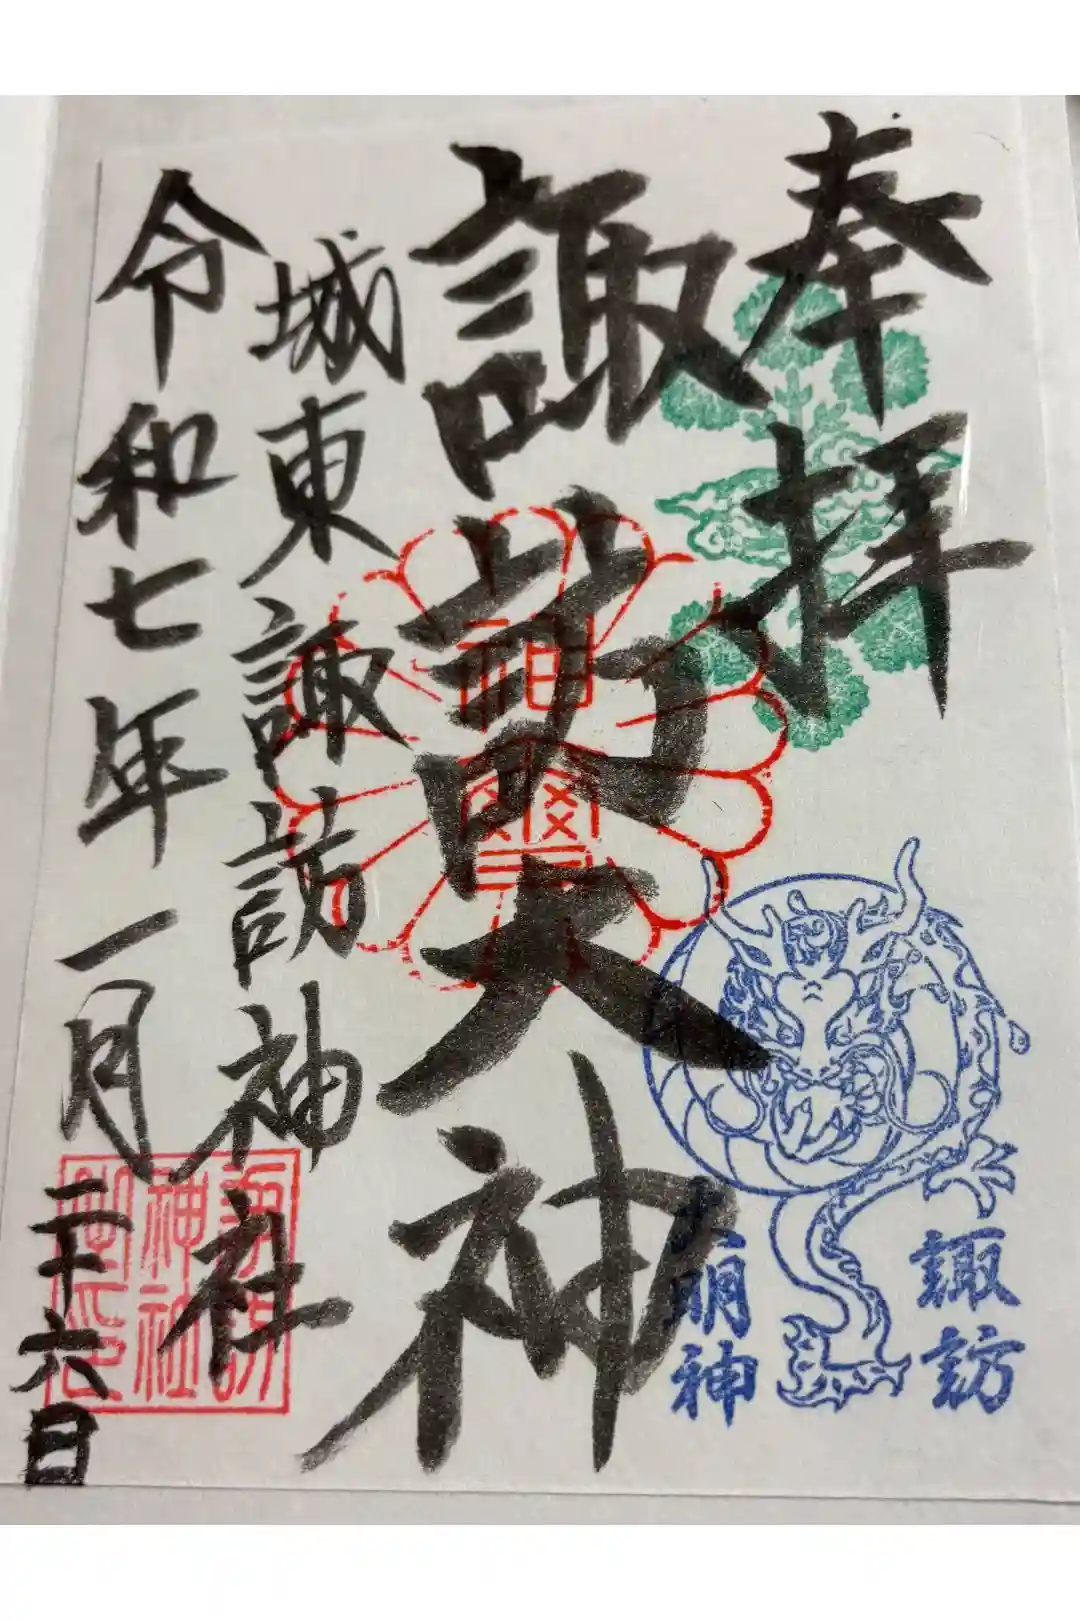 奉拝
諏訪大神
城東諏訪神社
令和七年一月二十六日
諏訪
大明神
神璽
諏訪
神社